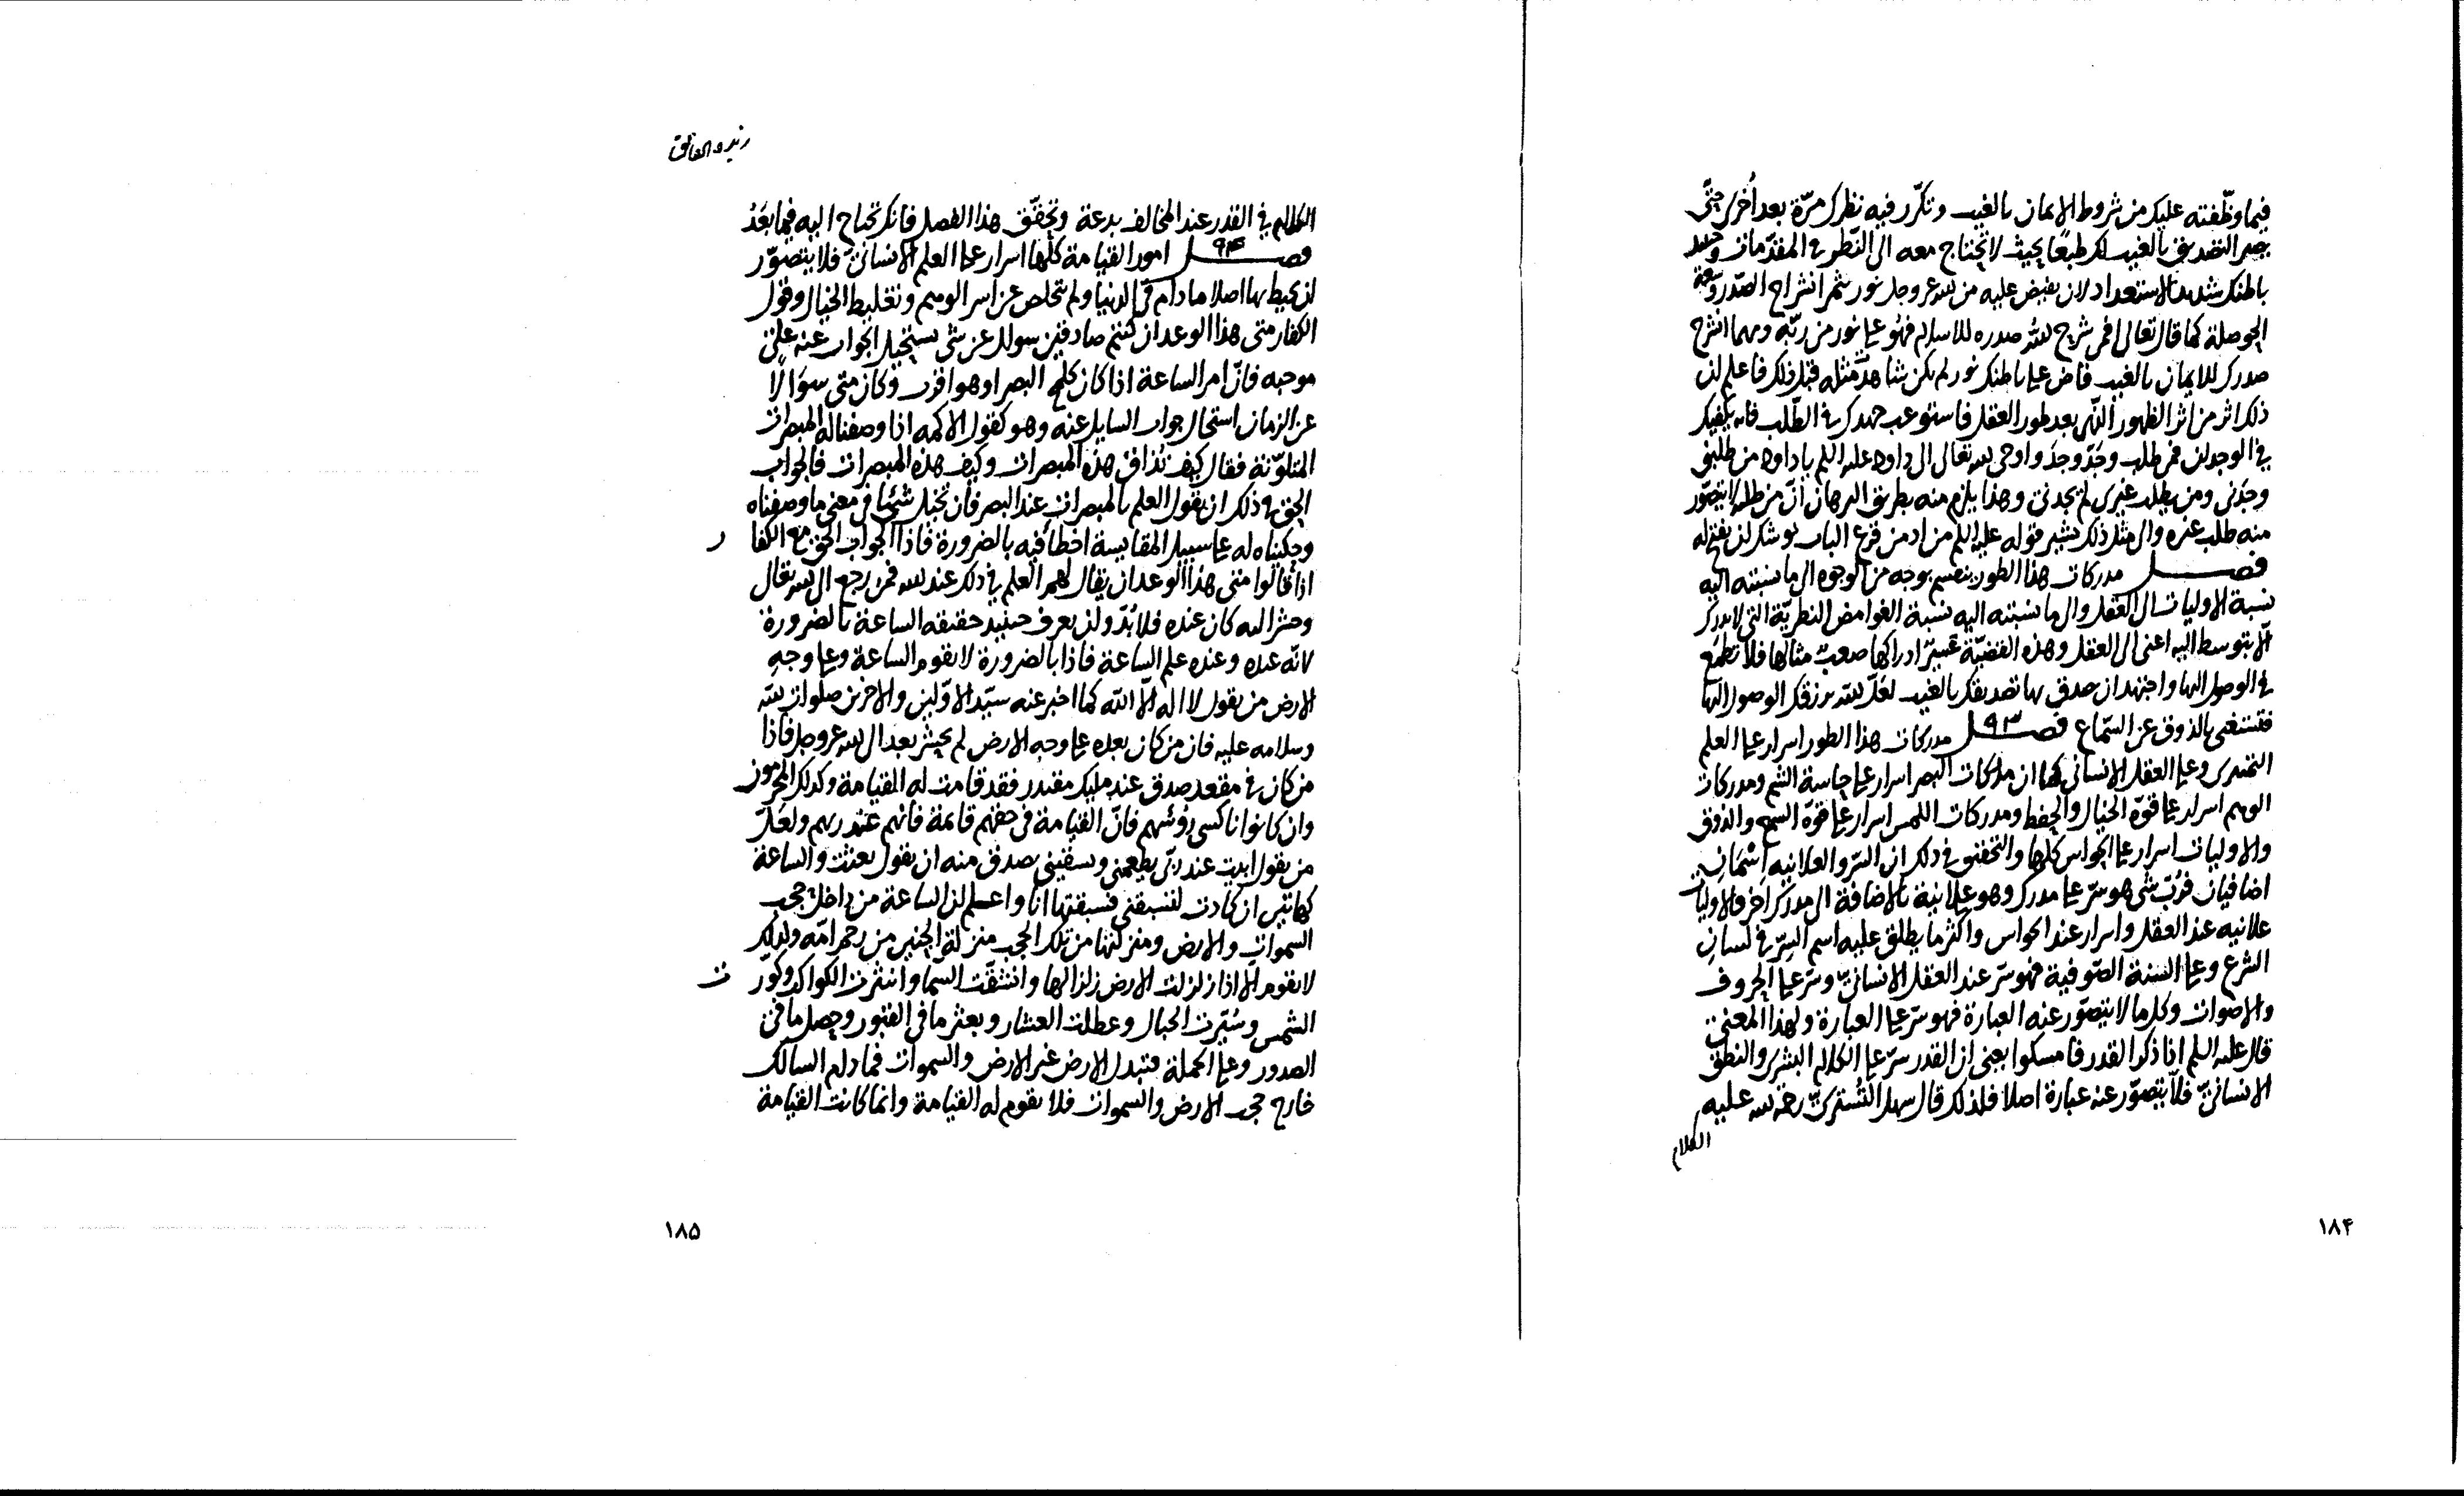 فيما وظّفته عليك من شروط الايمان بالغيب وتكرّر فيه نظرك مرّة بعد أخرى حتّى
يصير التصديق بالغيب لك طبعًا بحيث لا يحتاج معه الى النّظر في المقدّمات وحينئذ
باطنك شديد الاستعداد لان يفيض عليه من الله عز وجل نور يثمر انشراح الصّدر وسعة
الحوصلة كما قال تعالى افمن شرح الله صدره للاسلام فهو على نور من ربّه ومهما انشرح
صدرك للايمان بالغيب فاض على باطنك نور لم يكن تشاهد مثله قبل ذلك فاعلم ان
ذلك اثر من اثر الظهور الذى بعد طور العقل فاستوعب جهدك في الطّلب فانه يكفيك
في الوجدان فمن طلب وجدّ وجد واوحى الله تعالى الى داود عليه السلم يا داود من طلبنى
وجدنى ومن يطلب غيرى لم يجدنى وهذا يلزم منه بطريق البرهان انّ من طلبه لا يتصور
منه طلب غيره والى مثل ذلك يشير قوله عليه السلم من ادمن قرع الباب يوشك ان يفتح له
فصل مدركات هذا الطور ينقسم بوجه من الوجوه الى ما نسبته اليه
نسبة الاوليات الى العقل والى ما نسبته اليه نسبة الغوامض النظريّة التى لا يدرك
الّا بتوسط اليه اعنى الى العقل وهذه القضيّة عسير ادراكها صعب مثالها فلا تطمع
في الوصول اليها واجتهد ان صدق بها تصديقك بالغيب لعلّ الله يرزقك الوصول اليها
فتستغنى بالذوق عن السّماع فصل ٩٣ مدركات هذا الطور اسرار على العلم
البشرى وعلى العقل الانسانى كما ان مدركات البصر اسرار على حاسة الشم ومدركات
الوهم اسرار على قوّة الخيال والحفظ ومدركات اللمس اسرار على قوة السمع والذوق
والاوليات اسرار على الحواس كلها والتحقيق في ذلك ان السّر والعلانيه اسمان
اضافيان فربّ شى هو سرّ على مدرك وهو علانية بالاضافة الى مدرك اخر فالاوليات
علانيه عند العقل واسرار عند الحواس واكثر ما يطلق عليه اسم السّر في لسان
الشرع وعلى السنة الصّوفية فهو سرّ عند العقل الانسانىّ وسرّ على الحروف
والاصوات وكل ما لا يتصوّر عنه العبارة فهو سرّ على العبارة ولهذا المعنى
قال عليه السلم اذا ذكر القدر فامسكوا يعنى ان القدر سرّ على الكلام البشرى والنطق
الانسانىّ فلا يتصوّر عنه عبارة اصلا فلذلك قال سهل التّسترىّ رحمة الله عليه
الكلام
١٨۴
زبدة الحقائق
الكلام في القدر عند المخالف بدعة وتحقّق هذا الفصل فانك تحتاج اليه فيما بعد
فصل ٩۴ امور القيامة كلّها اسرار على العلم الانسانىّ فلا يتصوّر
ان يحيط بها اصلا ما دام في الدنيا ولم يتخلص عن اسر الوهم وتغليط الخيال وقول
الكفار متى هذا الوعد ان كنتم صادقين سوال عن شى يستحيل الجواب عنه على
موجبه فانّ امر الساعة اذا كان كلمح البصر او هو اقرب وكان متى سؤالًا
عن الزمان استحال جواب السايل عنه وهو كقول الاكمه اذا وصفنا له المبصرات
المتلوّنة فقال كيف تذاق هذه المبصرات وكيف هذه المبصرات فالجواب
الحق في ذلك ان يقول العلم بالمبصرات عند البصر فان تخيل شيئا في معنى ما وصفناه
وحكيناه له على سبيل المقايسة اخطأ فيه بالضرورة فاذا الجواب الحق مع الكفار
اذا قالوا متى هذا الوعد ان يقال لهم العلم في ذلك عند الله فمن رجع الى الله تعالى
وحشر اليه كان عنده فلا بدّ وان يعرف حينئذ حقيقة الساعة بالضرورة
لانّه عنده وعنده علم الساعة فاذا بالضرورة لا يقوم الساعة وعلى وجه
الارض من يقول لا اله الّا الله كما اخبر عنه سيّد الاوّلين والاخرين صلوات الله
وسلامه عليه فان من كان بعده على وجه الارض لم يحشر بعد الى الله عز وجل فاذا
من كان في مقعد صدق عند مليك مقتدر فقد قامت له القيامة وكذلك المجرمون
وان كانوا ناكسى رؤسهم فانّ القيامة في حقهم قائمة فانّهم عند ربهم ولعلّ
من يقول ابيت عند ربّى يطعمنى ويسقينى يصدق منه ان يقول بعثت والساعة
كهاتين ان كادت لتسبقنى فسبقتها انا واعلم ان الساعة من داخل حجب
السموات والارض ومنزلتها من تلك الحجب منزلة الجنين من رحم امّه ولذلك
لا يقوم الا اذا زلزلت الارض زلزالها وانشقّت السما وانتثرت الكواكب وكوّرت
الشمس وسيّرت الجبال وعطلت العشار وبعثر ما في القبور وحصل ما في
الصدور وعلى الجملة فتبدل الارض غير الارض والسموات فما دام السالك
خارج حجب الارض والسموات فلا يقوم له القيامة وانما كانت القيامة
١٨۵